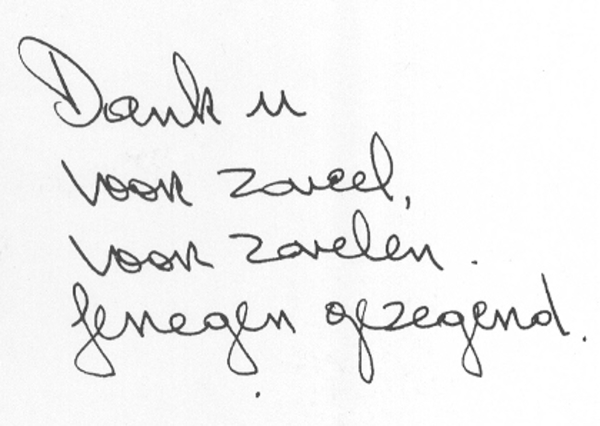 Dank u
voor zoveel,
voor zovelen.
Genegen gezegend.